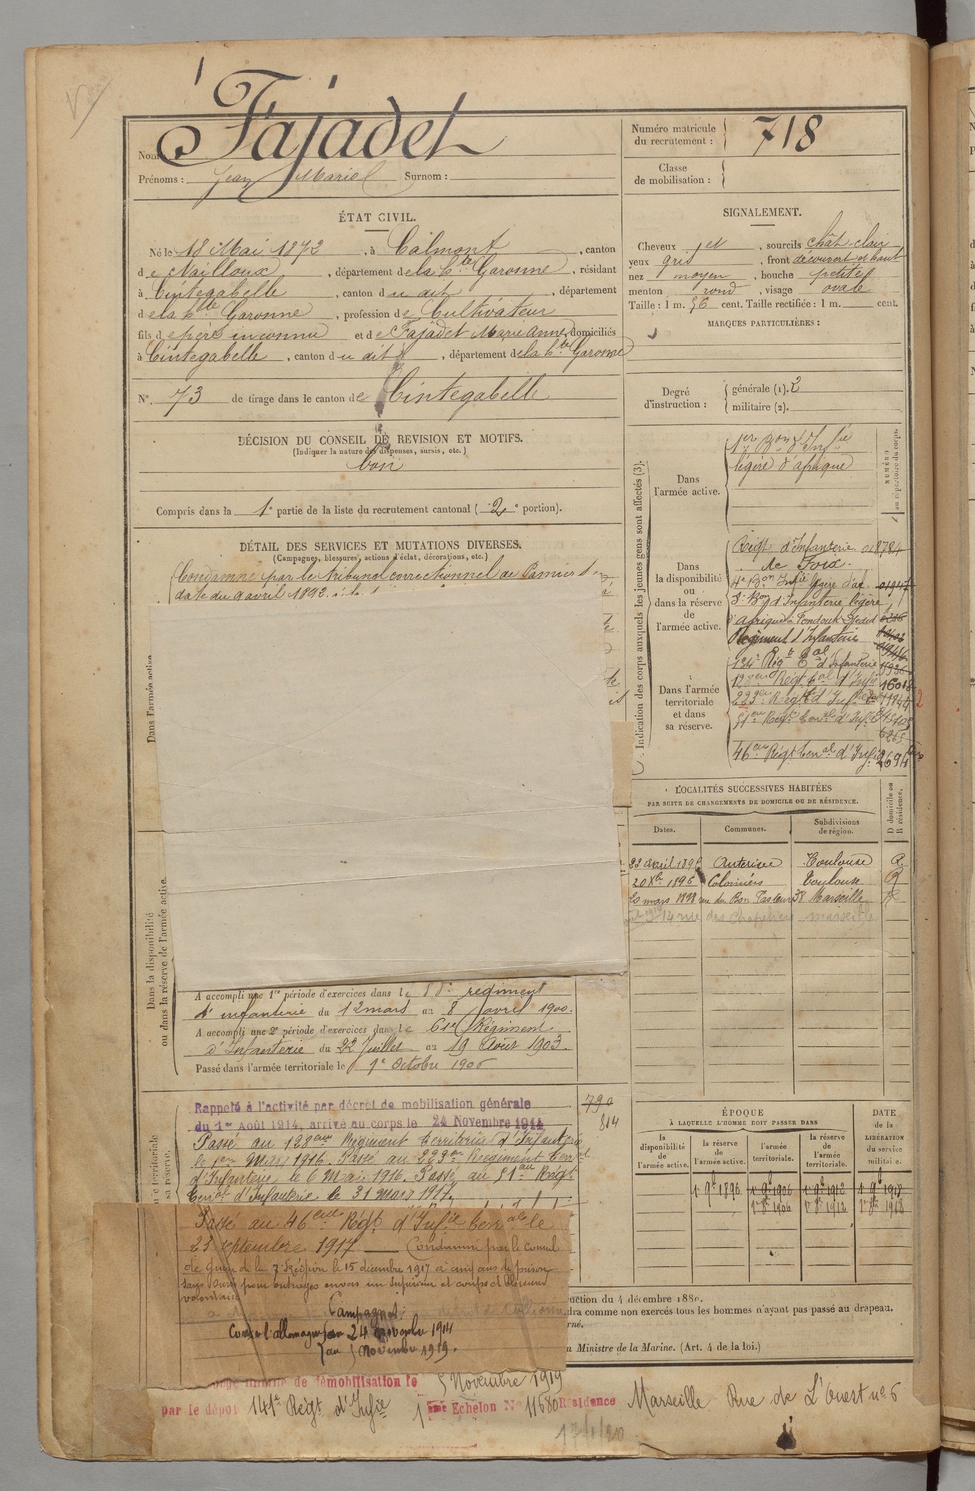 Fajadet
Nom
Prénoms : Jean Mariel Surnom :
Numéro matricule
du recrutement : 718
Classe
de mobilisation :
ÉTAT CIVIL.
Né le 18 Mai 1872, à Calmont, canton
de Nailloux, département de la hte Garonne, résidant
à Cintegabelle, canton du dit, département
de la hte Garonne, profession de Cultivateur
fils de père inconnu et de Fajadet Marie Anne, domiciliés
à Cintegabelle, canton du dit, département de la hte Garonne
N° 73 de tirage dans le canton de Cintegabelle
DÉCISION DU CONSEIL DE REVISION ET MOTIFS.
(Indiquer la nature des dispenses, sursis, etc.)
bon
Compris dans la 1e partie de la liste du recrutement cantonal (2e portion).
DÉTAIL DES SERVICES ET MUTATIONS DIVERSES.
(Campagnes, blessures, actions d'éclat, décorations, etc.)
Condamné par le tribunal correctionnel de Pamiers
date du 9 avril 1892
Dans l'armée active.
Dans la disponibilité
ou dans la réserve de l'armée active.
A accompli une 1re période d'exercices dans le régiment
d'infanterie du 12 mars au 8 avril 1900.
A accompli une 2e période d'exercices dans le 61e Régiment
d'Infanterie du 22 Juillet au 19 Août 1903.
Passé dans l'armée territoriale le 1er Octobre 1906
Rappelé à l'activité par décret de mobilisation générale
du 1er Août 1914, arrivé au corps le 24 Novembre 1914
790
814
Passé au 128eme Régiment territorial d'Infanterie
le 1er Mars 1916. Passé au 223eme Régiment terral
d'Infanterie le 6 Mai 1916. Passé au 51eme Régt
terral d'Infanterie le 31 Mars 1917.
Passé au 46eme Régt d'Infie terrale le
25 septembre 1917 Condamné par le conseil
de guerre de la 7e Région le 15 décembre 1917 à cinq ans de prison
sans sursis pour outrages envers un supérieur et coups et blessures
volontaires
Campagnes :
Contre l'allemagne du 24 novembre 1914
au 5 Novembre 1919.
de démobilisation le 5 Novembre 1919
par le dépôt 141e Régt d'Infie 1eme Echelon N° 11680 Résidence Marseille Rue de L'Ouest no 6
17/1/20
SIGNALEMENT.
Cheveux et, sourcils chât-clair
yeux gris, front découvert et haut
nez moyen, bouche petite
menton rond, visage ovale
Taille : 1 m. 56 cent. Taille rectifiée : 1 m. cent.
MARQUES PARTICULIÈRES :
Degré
d'instruction :
générale (1). 2
militaire (2).
Indication des corps auxquels les jeunes gens sont affectés (3).
Dans
l'armée active.
1er Bon d'Infie
légère d'afrique
NUMÉRO
au répertoire du corps.
Dans
la disponibilité
ou
dans la réserve
de
l'armée active.
Régt d'Infanterie
de Foix.
4e Bon Infie légère d'af.
3e Bon d'Infanterie légère
d'afrique
Régiment d'Infanterie
Dans l'armée
territoriale
et dans
sa réserve.
124e Régt tal d'Infanterie
128eme Régt tal d'Infie
223eme Régt tal d'Infie
51eme Régt terral d'Infie
46eme Régt terral d'Infie
LOCALITÉS SUCCESSIVES HABITÉES
PAR SUITE DE CHANGEMENTS DE DOMICILE OU DE RÉSIDENCE.
Dates. Communes. Subdivisions
de région. D domicile ou
R résidence.
22 avril 1896 Auterive Toulouse R
20 Xbre 1896 Colomiers Toulouse R
20 mars 1898 rue du Bon Pasteur 38 Marseille R
14 rue des Chapeliers marseille
ÉPOQUE
À LAQUELLE L'HOMME DOIT PASSER DANS
DATE
DE LA
LIBÉRATION
DU SERVICE
militaire.
la
disponibilité
de
l'armée active.
la réserve
de
l'armée active.
l'armée
territoriale.
la réserve
de
l'armée
territoriale.
1 9bre 1896 1 9bre 1906 1 9bre 1912 1 9bre 1918
uction du 4 décembre 1889.
dra comme non exercés tous les hommes n'ayant pas passé au drapeau.
rné.
u Ministre de la Marine. (Art. 4 de la loi.)